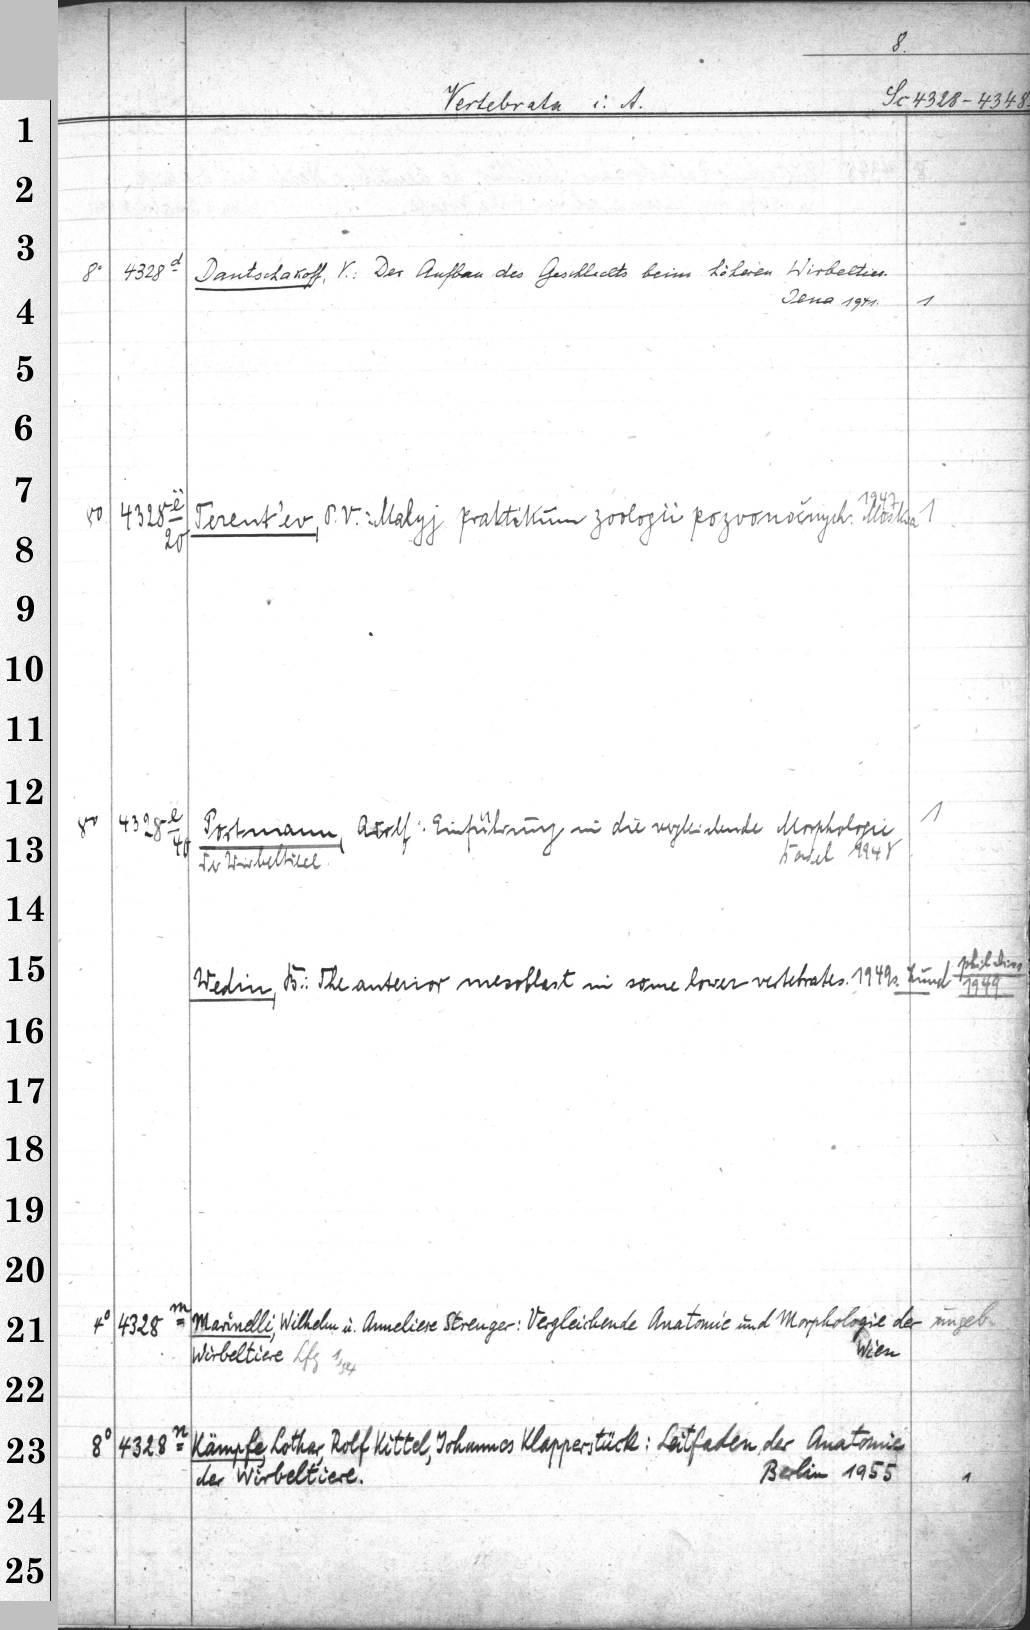 8.
Vertebrata i. A. Sc 4328-4348
1
2
3
8° 4328 d Dantschakoff, V.: Der Aufbau des Geschlechts beim höheren Wirbeltier.
4 Jena 1941. 1
5
6
7
8° 4328 ë/20 Terent'ev, P. V.: Malyj praktikum zoologii pozvonočnych. Moskva 1947 1
8
9
10
11
12
8° 4328 ë/40 Portmann, Adolf: Einführung in die vergleichende Morphologie 1
13 der Wirbeltiere. Basel 1948
14
15 Wedin, B.: The anterior mesoblast in some lower vertebrates. 1949. Lund phil. Diss 1949
16
17
18
19
20
21 4° 4328 m Marinelli, Wilhelm u. Anneliese Strenger: Vergleichende Anatomie und Morphologie der ungeb.
Wirbeltiere Lfg 1/54 Wien
22
23 8° 4328 n Kämpfe, Lothar, Rolf Kittel, Johannes Klapperstück: Leitfaden der Anatomie
der Wirbeltiere. Berlin 1955 1
24
25